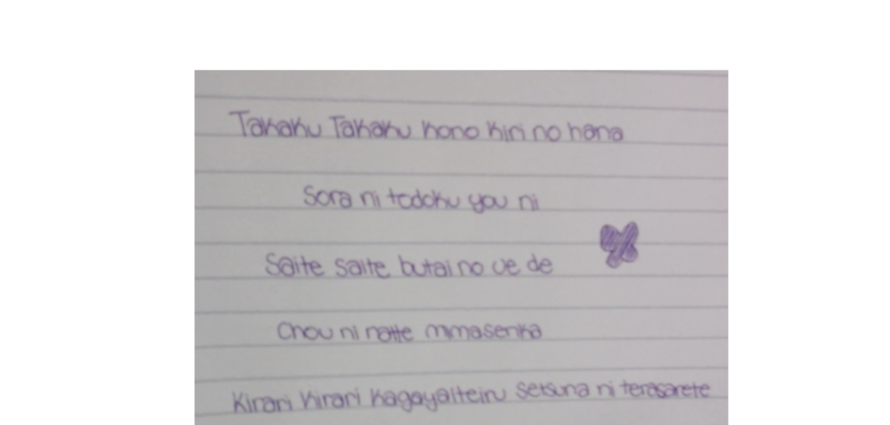 Takaku Takaku kono kiri no hana
Sora ni todoku you ni
Saite saite butai no ue de
Chou ni natte mimasenka
Kirari Kirari Kagayaiteiru setsuna ni terasarete